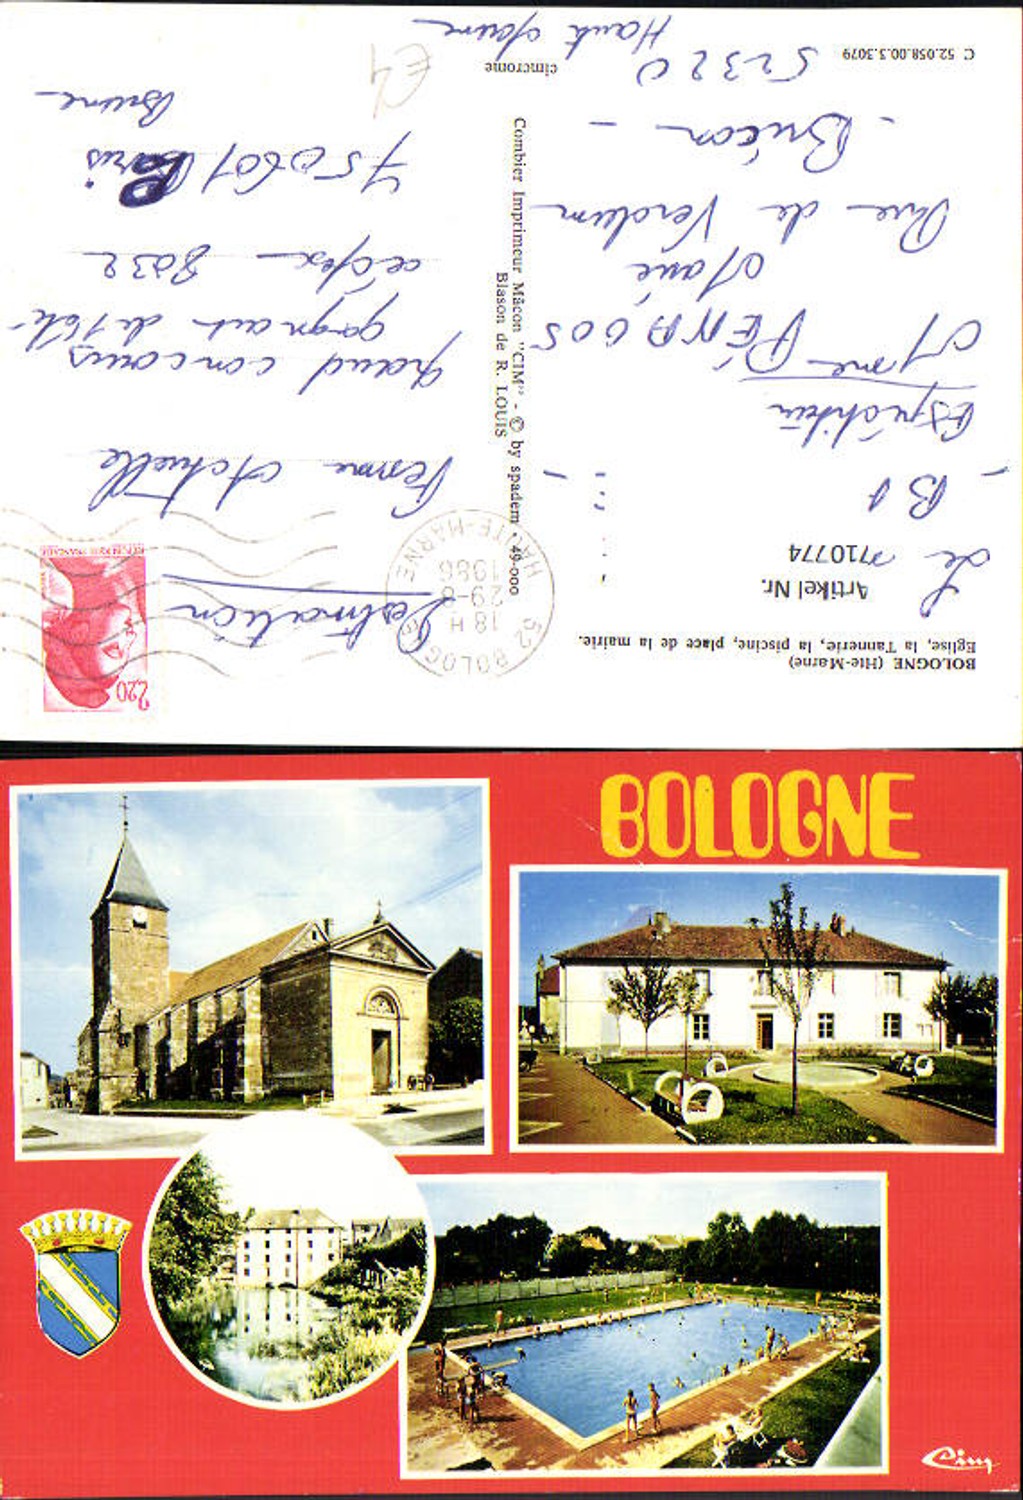 BOLOGNE (Hte-Marne)
Eglise, la Tannerie, la piscine, place de la mairie.
Artikel Nr.
710774
Le
B1
Expéditeur
Mme PÉNAGOS
Marie
Rue de Verdun
- Bricon -
52320
Haute Marne
C 52.058.00.3.3079
cimcrome
Combier Imprimeur Mâcon "CIM" - © by spadem - 49-000
Blason de R. LOUIS
52 BOLOGNE
18 H
29-8
1986
HAUTE-MARNE
2,20
REPUBLIQUE FRANÇAISE
Destination
Femme Actuelle
grand concours
gagnant de l'été
cédex 8032
Paris
Brune
E4
BOLOGNE
Cim